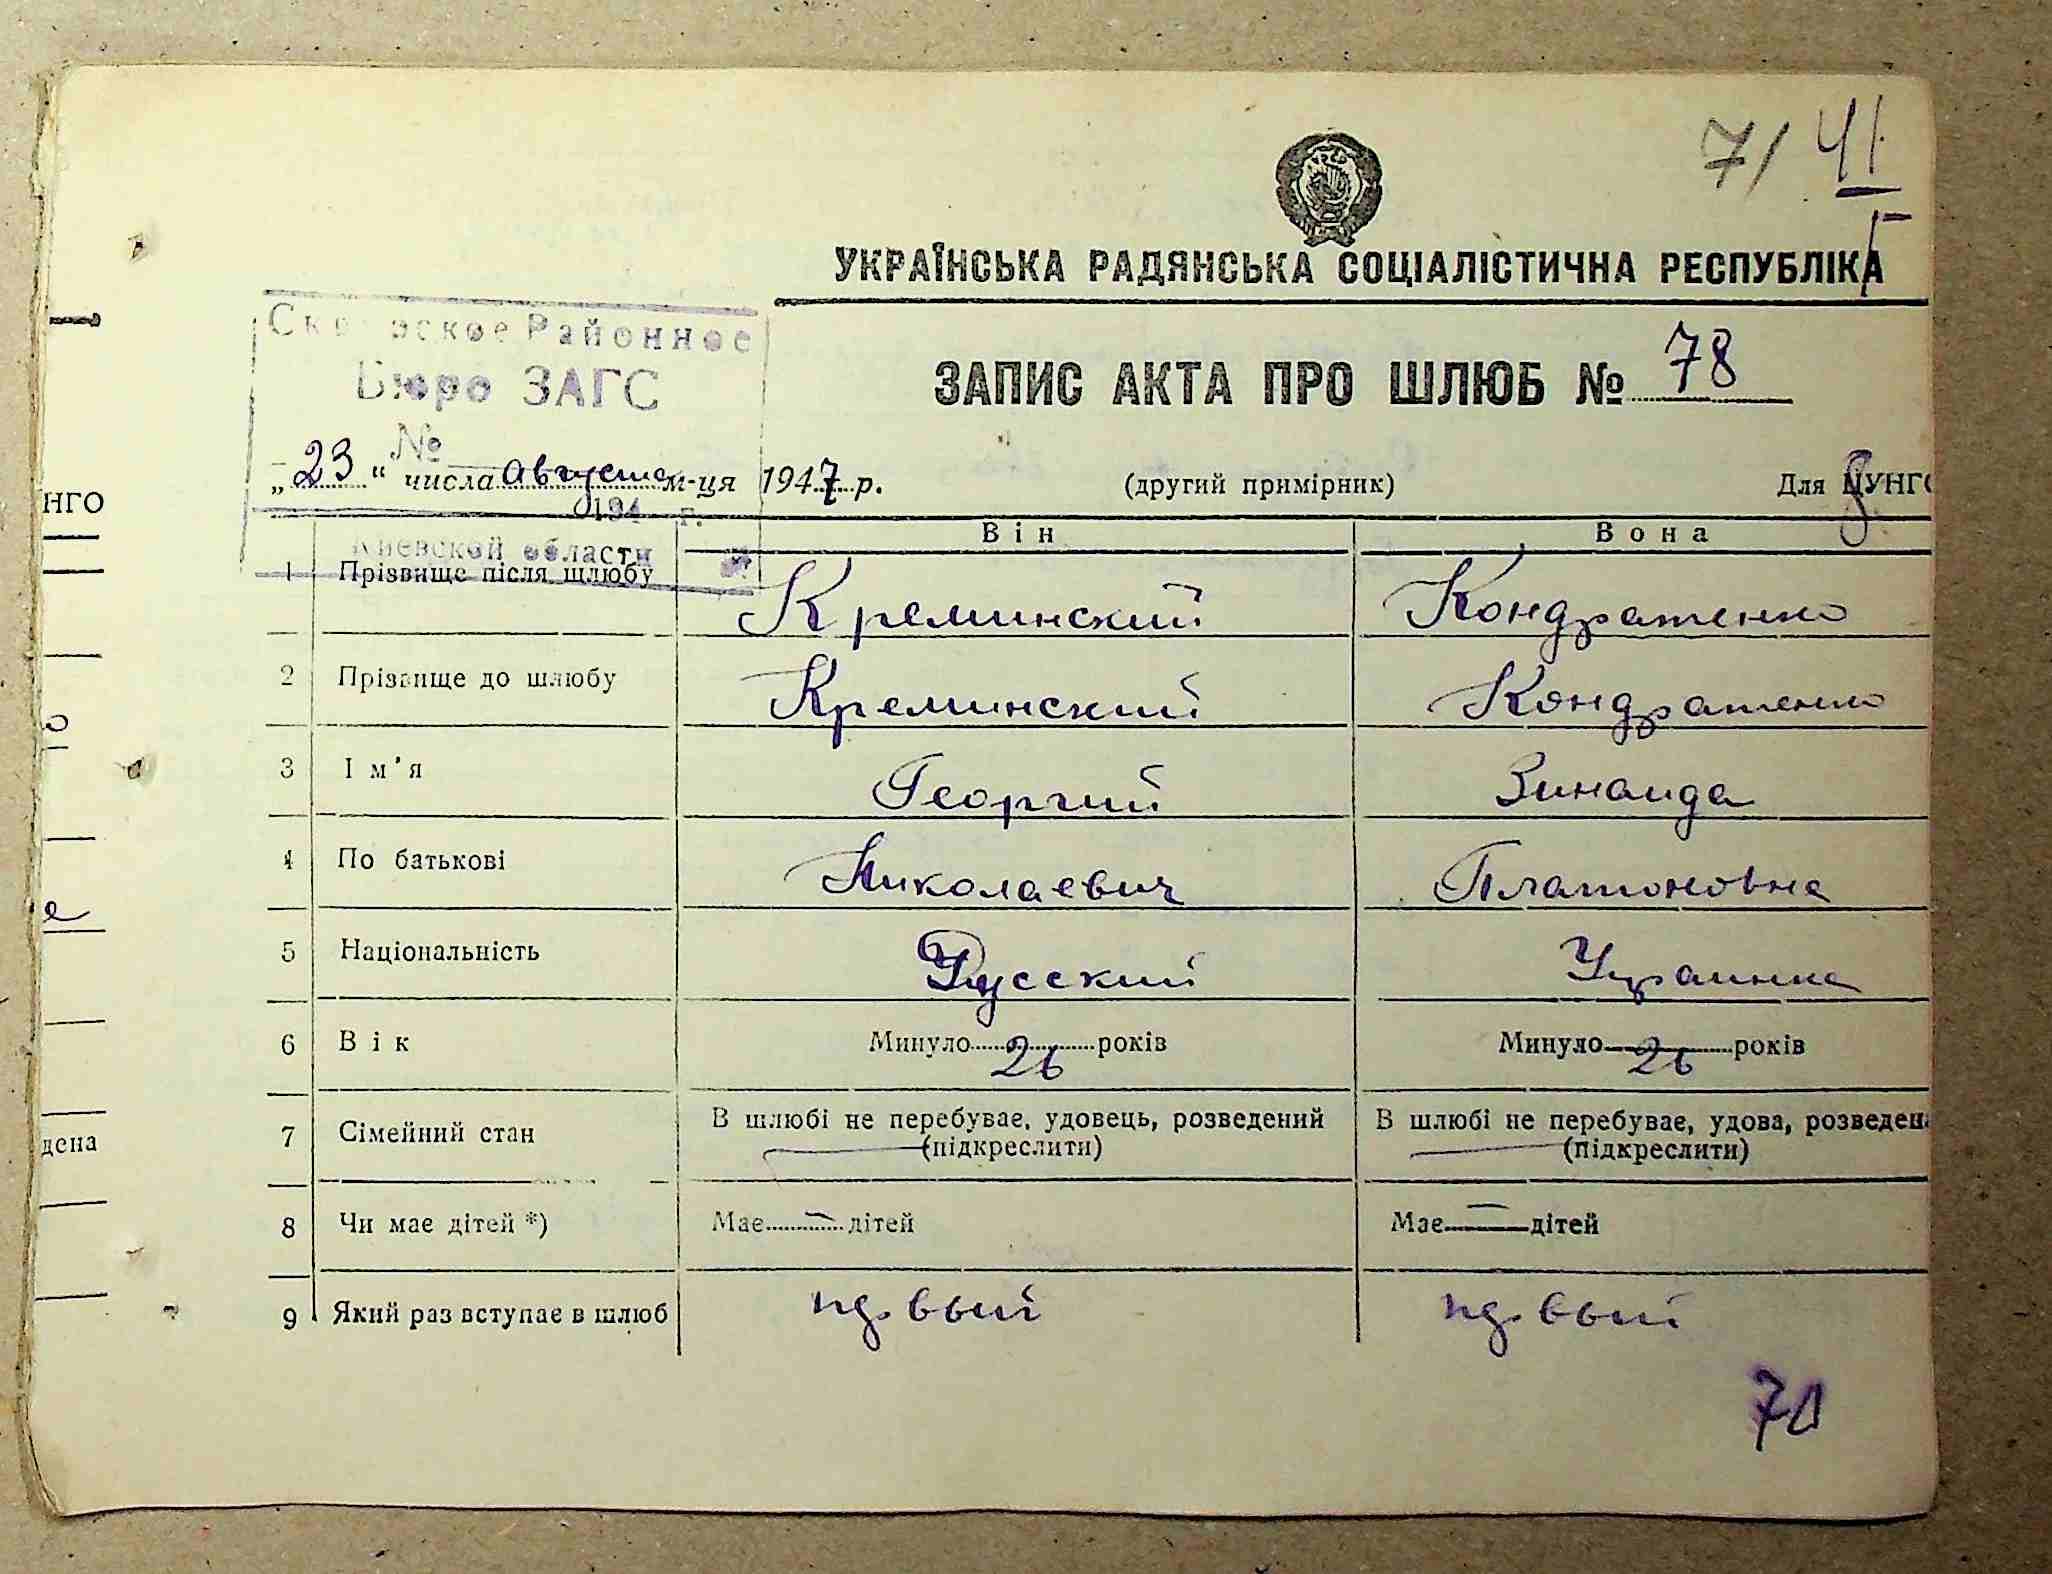 7/ 41
УКРАЇНСЬКА РАДЯНСЬКА СОЦІАЛІСТИЧНА РЕСПУБЛІКА
Районное
Бюро ЗАГС
№
194 г.
Киевской области
ЗАПИС АКТА ПРО ШЛЮБ № 78
„23“ числа августа м-ця 1947 р. (другий примірник) Для ЦУНГО
НГО
Він Вона
1 Прізвище після шлюбу Креминский Кондратенко
2 Прізвище до шлюбу Креминский Кондратенко
3 Ім'я Георгий Зинаида
4 По батькові Николаевич Платоновна
5 Національність Русский Украинка
6 Вік Минуло 26 років Минуло 26 років
7 Сімейний стан В шлюбі не перебуває, удовець, розведений В шлюбі не перебуває, удова, розведена
(підкреслити) (підкреслити)
дена
8 Чи має дітей *) Має — дітей Має — дітей
9 Який раз вступає в шлюб первый первый